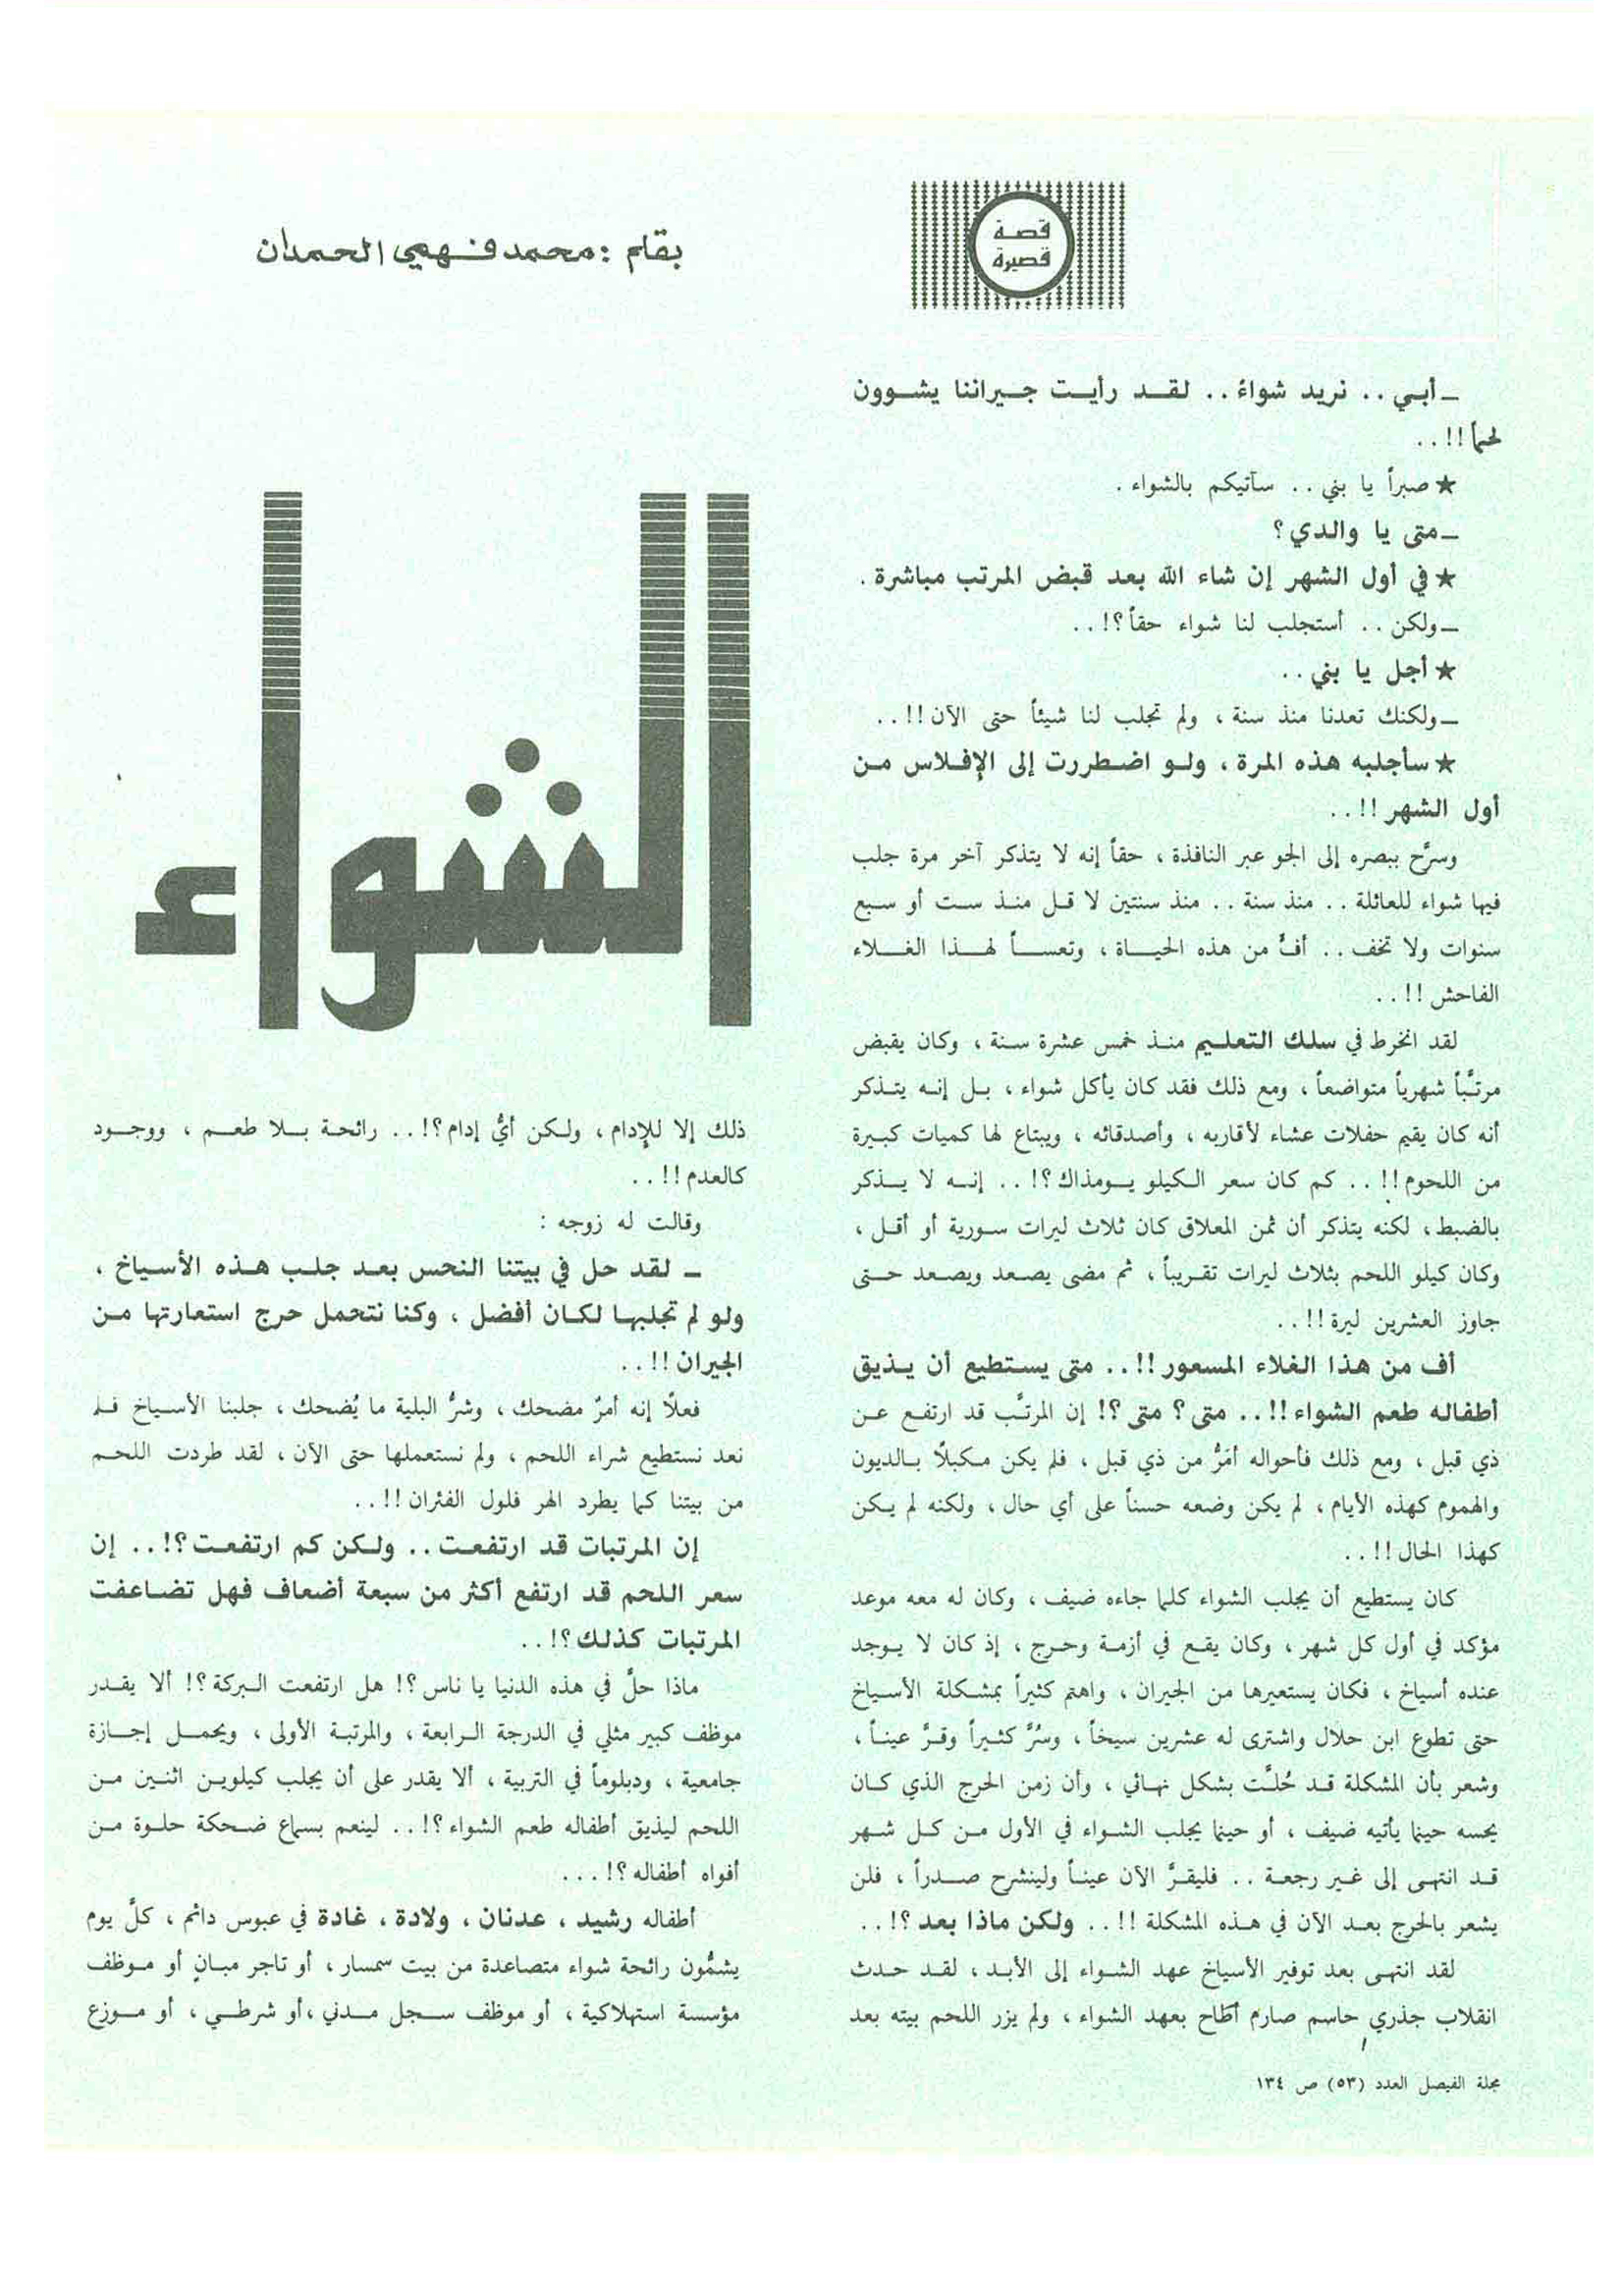 قصة
قصيرة
بقلم : محمد فهمي الحمدان
الشواء
ـ أبي .. نريد شواءً .. لقد رأيت جيراننا يشوون
لحماً !! ..
★ صبراً يا بني .. سآتيكم بالشواء .
ـ متى يا والدي ؟
★ في أول الشهر إن شاء الله بعد قبض المرتب مباشرة .
ـ ولكن .. أستجلب لنا شواء حقاً ؟! ..
★ أجل يا بني ..
ـ ولكنك تعدنا منذ سنة ، ولم تجلب لنا شيئاً حتى الآن !! ..
★ سأجلبه هذه المرة ، ولو اضطررت إلى الإفلاس من
أول الشهر !! ..
وسرَّح ببصره إلى الجو عبر النافذة ، حقاً إنه لا يتذكر آخر مرة جلب
فيها شواء للعائلة .. منذ سنة .. منذ سنتين لا قل منذ ست أو سبع
سنوات ولا تخف .. أفٍّ من هذه الحياة ، وتعساً لهذا الغلاء
الفاحش !! ..
لقد انخرط في سلك التعليم منذ خمس عشرة سنة ، وكان يقبض
مرتَّباً شهرياً متواضعاً ، ومع ذلك فقد كان يأكل شواء ، بل إنه يتذكر
أنه كان يقيم حفلات عشاء لأقاربه ، وأصدقائه ، ويبتاع لها كميات كبيرة
من اللحوم !! .. كم كان سعر الكيلو يومذاك ؟! .. إنه لا يذكر
بالضبط ، لكنه يتذكر أن ثمن المعلاق كان ثلاث ليرات سورية أو أقل ،
وكان كيلو اللحم بثلاث ليرات تقريباً ، ثم مضى يصعد ويصعد حتى
جاوز العشرين ليرة !! ..
أف من هذا الغلاء المسعور !! .. متى يستطيع أن يذيق
أطفاله طعم الشواء !! .. متى ؟ متى ؟! إن المرتَّب قد ارتفع عن
ذي قبل ، ومع ذلك فأحواله أمَرُّ من ذي قبل ، فلم يكن مكبلاً بالديون
والهموم كهذه الأيام ، لم يكن وضعه حسناً على أي حال ، ولكنه لم يكن
كهذا الحال !! ..
كان يستطيع أن يجلب الشواء كلما جاءه ضيف ، وكان له معه موعد
مؤكد في أول كل شهر ، وكان يقع في أزمة وحرج ، إذ كان لا يوجد
عنده أسياخ ، فكان يستعيرها من الجيران ، واهتم كثيراً بمشكلة الأسياخ
حتى تطوع ابن حلال واشترى له عشرين سيخاً ، وسُرَّ كثيراً وقرَّ عيناً ،
وشعر بأن المشكلة قد حُلَّت بشكل نهائي ، وأن زمن الحرج الذي كان
يحسه حينما يأتيه ضيف ، أو حينما يجلب الشواء في الأول من كل شهر
قد انتهى إلى غير رجعة .. فليقرَّ الآن عيناً ولينشرح صدراً ، فلن
يشعر بالحرج بعد الآن في هذه المشكلة !! .. ولكن ماذا بعد ؟! ..
لقد انتهى بعد توفير الأسياخ عهد الشواء إلى الأبد ، لقد حدث
انقلاب جذري حاسم صارم أطاح بعهد الشواء ، ولم يزر اللحم بيته بعد
ذلك إلا للإدام ، ولكن أيُّ إدام ؟! .. رائحة بلا طعم ، ووجود
كالعدم !! ..
وقالت له زوجه :
ـ لقد حل في بيتنا النحس بعد جلب هذه الأسياخ ،
ولو لم تجلبها لكان أفضل ، وكنا نتحمل حرج استعارتها من
الجيران !! ..
فعلاً إنه أمرٌ مضحك ، وشرُّ البلية ما يُضحك ، جلبنا الأسياخ فلم
نعد نستطيع شراء اللحم ، ولم نستعملها حتى الآن ، لقد طردت اللحم
من بيتنا كما يطرد الهر فلول الفئران !! ..
إن المرتبات قد ارتفعت .. ولكن كم ارتفعت ؟! .. إن
سعر اللحم قد ارتفع أكثر من سبعة أضعاف فهل تضاعفت
المرتبات كذلك ؟! ..
ماذا حلَّ في هذه الدنيا يا ناس ؟! هل ارتفعت البركة ؟! ألا يقدر
موظف كبير مثلي في الدرجة الرابعة ، والمرتبة الأولى ، ويحمل إجازة
جامعية ، ودبلوماً في التربية ، ألا يقدر على أن يجلب كيلوين اثنين من
اللحم ليذيق أطفاله طعم الشواء ؟! .. لينعم بسماع ضحكة حلوة من
أفواه أطفاله ؟! ...
أطفاله رشيد ، عدنان ، ولادة ، غادة في عبوس دائم ، كلَّ يوم
يشمُّون رائحة شواء متصاعدة من بيت سمسار ، أو تاجر مبانٍ أو موظف
مؤسسة استهلاكية ، أو موظف سجل مدني ، أو شرطي ، أو موزع
مجلة الفيصل العدد (٥٣) ص ١٣٤